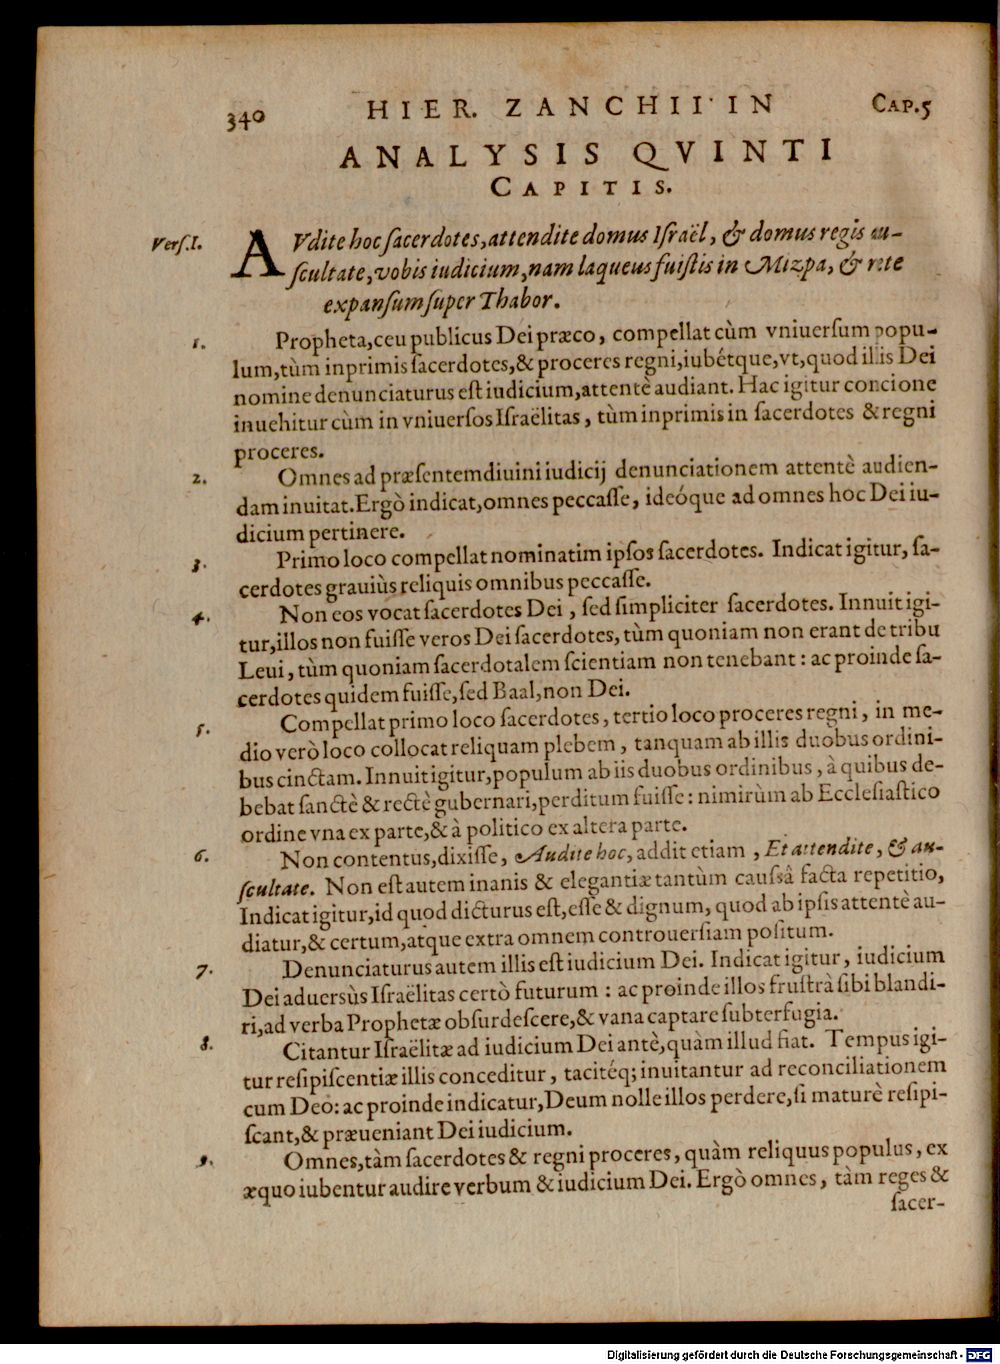 340 HIER. ZANCHII IN CAP.5
ANALYSIS QVINTI
CAPITIS.
Verſ.I. AVdite hoc ſacerdotes, attendite domus Iſraël, & domus regis au-
ſcultate, vobis iudicium, nam laqueus fuiſtis in Mizpa, & rete
expanſum ſuper Thabor.
1. Propheta, ceu publicus Dei præco, compellat cùm vniuerſum popu-
lum, tùm inprimis ſacerdotes, & proceres regni, iubétque, vt, quod illis Dei
nomine denunciaturus eſt iudicium, attentè audiant. Hac igitur concione
inuehitur cùm in vniuerſos Iſraëlitas, tùm inprimis in ſacerdotes & regni
proceres.
2. Omnes ad præſentem diuini iudicij denunciationem attentè audien-
dam inuitat. Ergò indicat, omnes peccaſſe, ideóque ad omnes hoc Dei iu-
dicium pertinere.
3. Primo loco compellat nominatim ipſos ſacerdotes. Indicat igitur, ſa-
cerdotes grauiùs reliquis omnibus peccaſſe.
4. Non eos vocat ſacerdotes Dei, ſed ſimpliciter ſacerdotes. Innuit igi-
tur, illos non fuiſſe veros Dei ſacerdotes, tùm quoniam non erant de tribu
Leui, tùm quoniam ſacerdotalem ſcientiam non tenebant: ac proinde ſa-
cerdotes quidem fuiſſe, ſed Baal, non Dei.
5. Compellat primo loco ſacerdotes, tertio loco proceres regni, in me-
dio verò loco collocat reliquam plebem, tanquam ab illis duobus ordini-
bus cinctam. Innuit igitur, populum ab iis duobus ordinibus, à quibus de-
bebat ſanctè & rectè gubernari, perditum fuiſſe: nimirùm ab Eccleſiaſtico
ordine vna ex parte, & à politico ex altera parte.
6. Non contentus, dixiſſe, Audite hoc, addit etiam, Et attendite, & au-
ſcultate. Non eſt autem inanis & elegantiæ tantùm cauſsâ facta repetitio,
Indicat igitur, id quod dicturus eſt, eſſe & dignum, quod ab ipſis attentè au-
diatur, & certum, atque extra omnem controuerſiam poſitum.
7. Denunciaturus autem illis eſt iudicium Dei. Indicat igitur, iudicium
Dei aduersùs Iſraëlitas certò futurum: ac proinde illos fruſtrà ſibi blandi-
ri, ad verba Prophetæ obſurdeſcere, & vana captare ſubterfugia.
8. Citantur Iſraëlitæ ad iudicium Dei antè, quàm illud fiat. Tempus igi-
tur reſipiſcentiæ illis conceditur, tacitéq; inuitantur ad reconciliationem
cum Deo: ac proinde indicatur, Deum nolle illos perdere, ſi maturè reſipi-
ſcant, & præueniant Dei iudicium.
9. Omnes, tàm ſacerdotes & regni proceres, quàm reliquus populus, ex
æquo iubentur audire verbum & iudicium Dei. Ergò omnes, tàm reges &
ſacer-
Digitalisierung gefördert durch die Deutsche Forschungsgemeinschaft - DFG